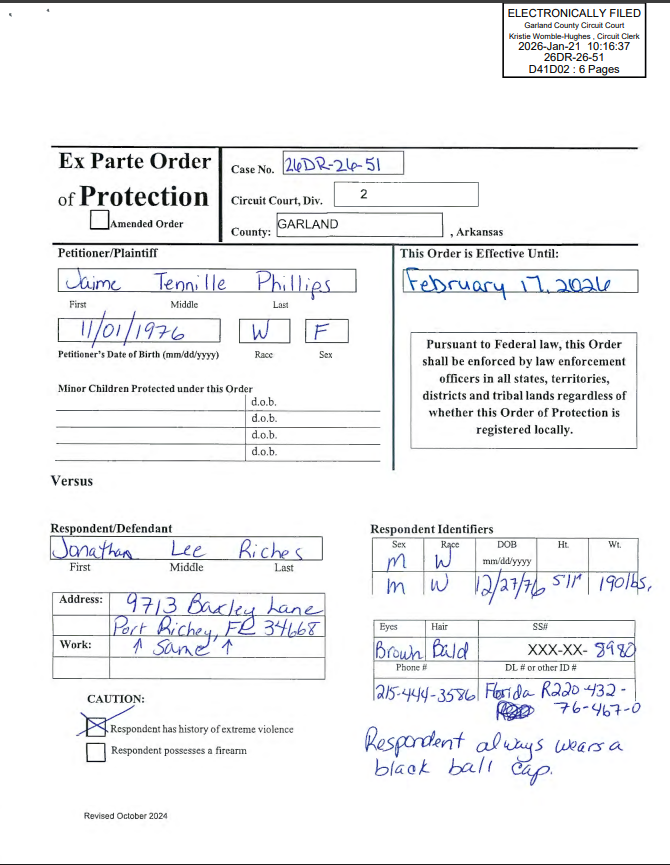 ELECTRONICALLY FILED
Garland County Circuit Court
Kristie Womble-Hughes , Circuit Clerk
2026-Jan-21 10:16:37
26DR-26-51
D41D02 : 6 Pages
Ex Parte Order
of Protection
Amended Order
Case No. 26DR-26-51
Circuit Court, Div. 2
County: GARLAND , Arkansas
Petitioner/Plaintiff
Jaime Tennille Phillips
First Middle Last
11/01/1976 W F
Petitioner's Date of Birth (mm/dd/yyyy) Race Sex
Minor Children Protected under this Order
d.o.b.
d.o.b.
d.o.b.
d.o.b.
This Order is Effective Until:
February 17, 2026
Pursuant to Federal law, this Order
shall be enforced by law enforcement
officers in all states, territories,
districts and tribal lands regardless of
whether this Order of Protection is
registered locally.
Versus
Respondent/Defendant
Jonathan Lee Riches
First Middle Last
Address: 9713 Baxley Lane
Port Richey, FL 34668
Work: ↑ Same ↑
CAUTION:
Respondent has history of extreme violence
Respondent possesses a firearm
Respondent Identifiers
Sex Race DOB Ht. Wt.
M W mm/dd/yyyy
M W 12/27/76 5'11" 190lbs.
Eyes Hair SS#
Brown Bald XXX-XX- 8980
Phone # DL # or other ID #
215-444-3586 Florida R220-432-
76-467-0
Respondent always wears a
black ball cap.
Revised October 2024